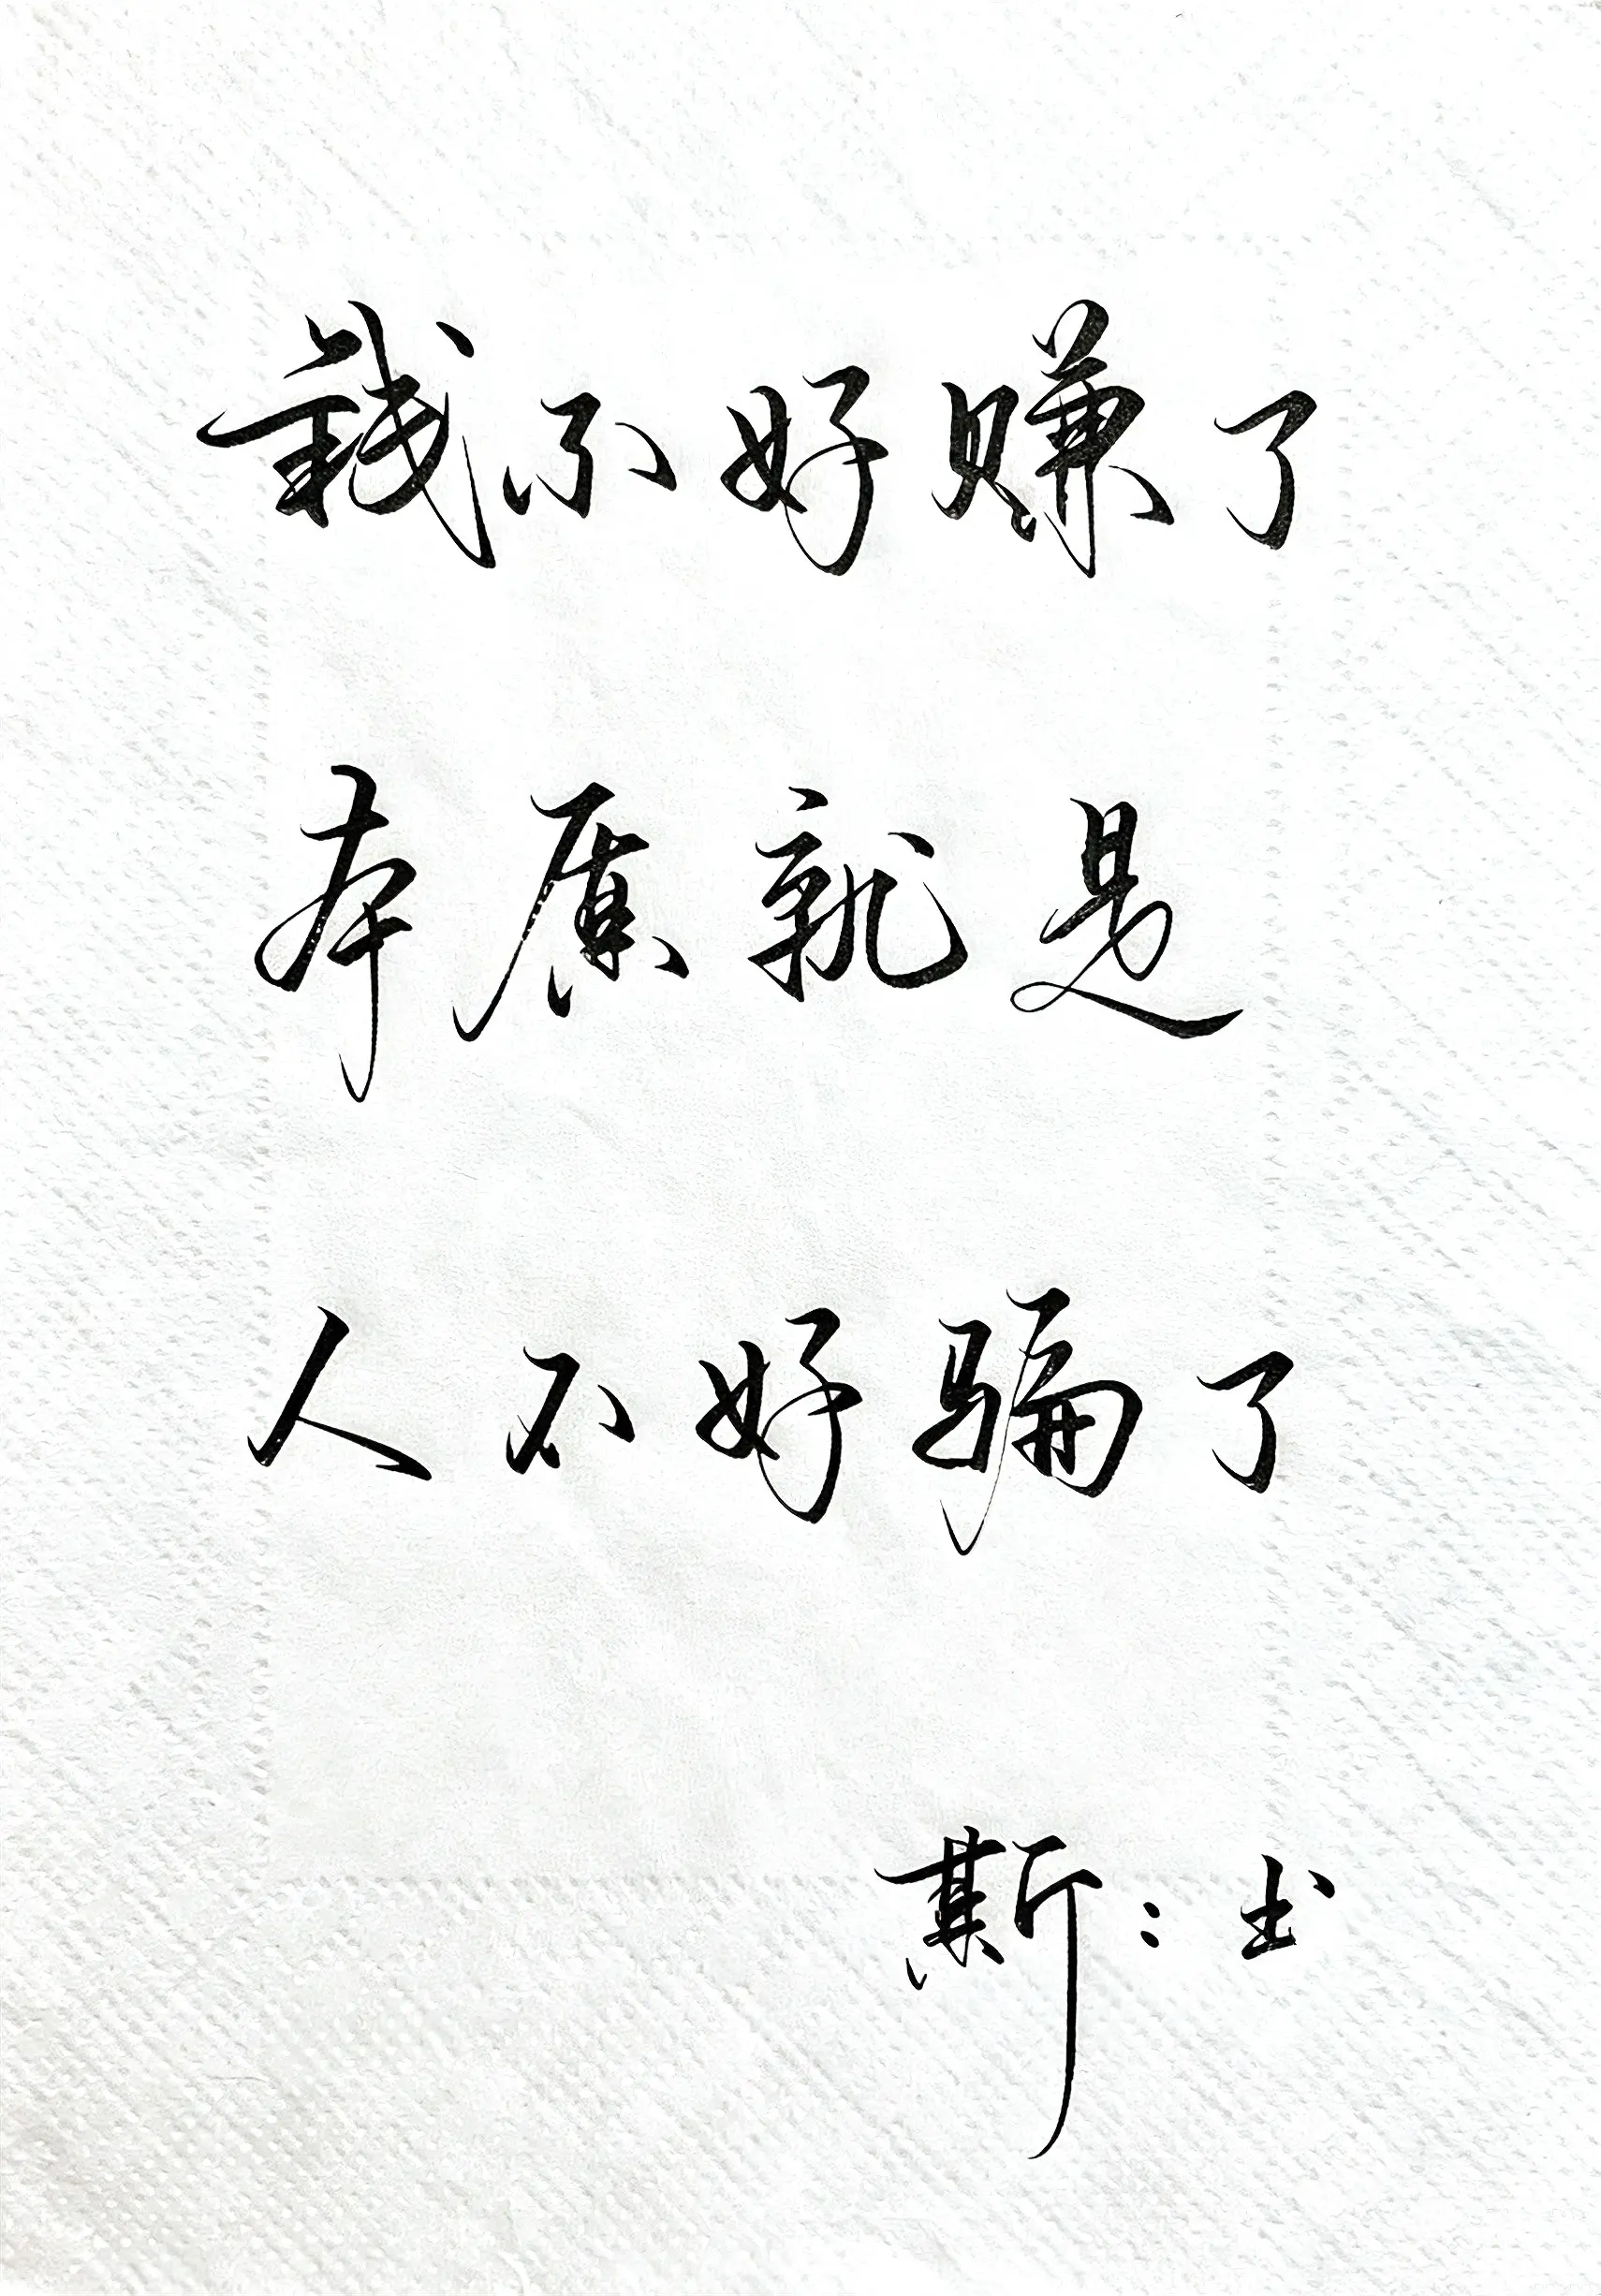 钱不好赚了
本质就是
人不好骗了
斯:书